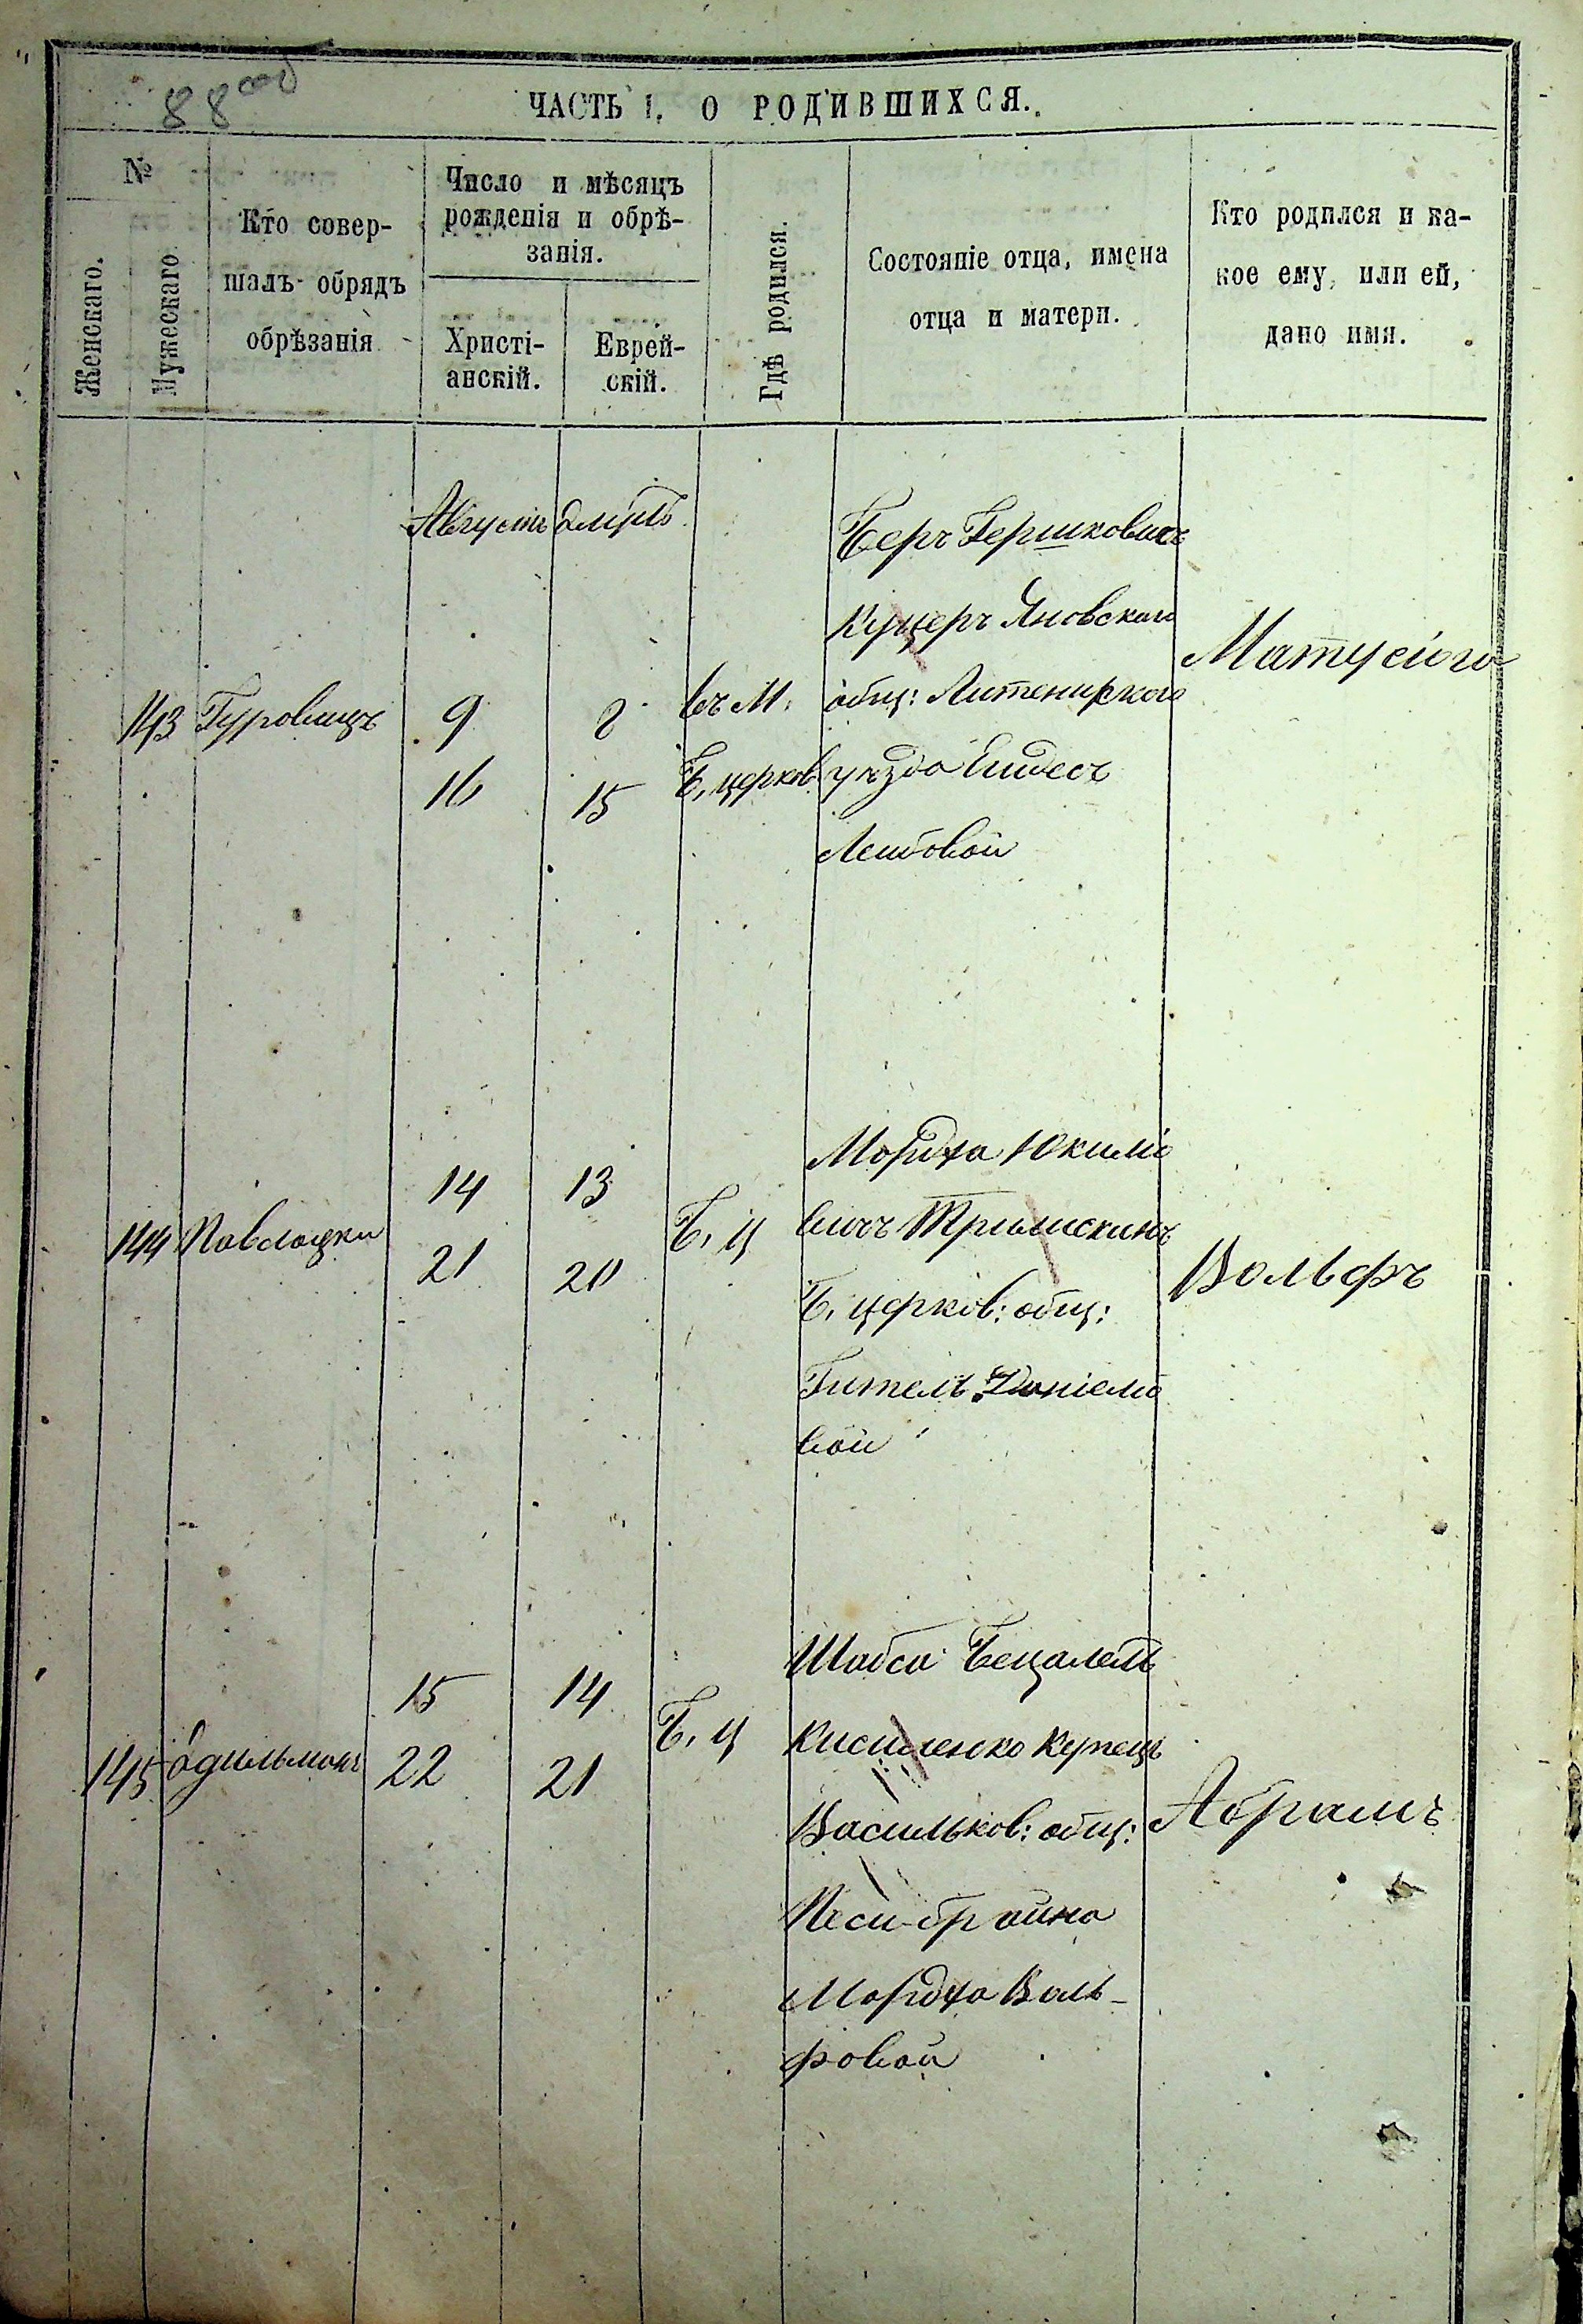 88 
ЧАСТЬ I. О РОДИВШИХСЯ.
№
Женскаго.
Мужескаго
Кто совер-
шалъ обрядъ
обрѣзанія
Число и мѣсяцъ
рожденія и обрѣ-
занія.
Христі-
анскій.
Еврей-
скій.
Гдѣ родился.
Состояніе отца, имена
отца и матери.
Кто родился и ка-
кое ему, или ей,
дано имя.
Августъ Элулъ
143 Гуровицъ
9 8
16 15
въ М.
Б, церков
Беръ Гершковичъ
Куцеръ Яновскаго
общ: Литенцкаго
уѣзда Ейдесъ
Лейбовой
Матусъ
144 Паволоцки
14 13
21 20
Б, Ц
Мордха Юкилѣ
вичъ Тришскинъ
Б, церков: общ:
Гитель Даніело
вой
Вольфъ
145 Эдильманъ
15 14
22 21
Б, Ц
Шабса Бецалелъ
Кисиленко Купецъ
Васильков: общ:
Песи-брайна
Мордха Воль-
фовой
Абрамъ